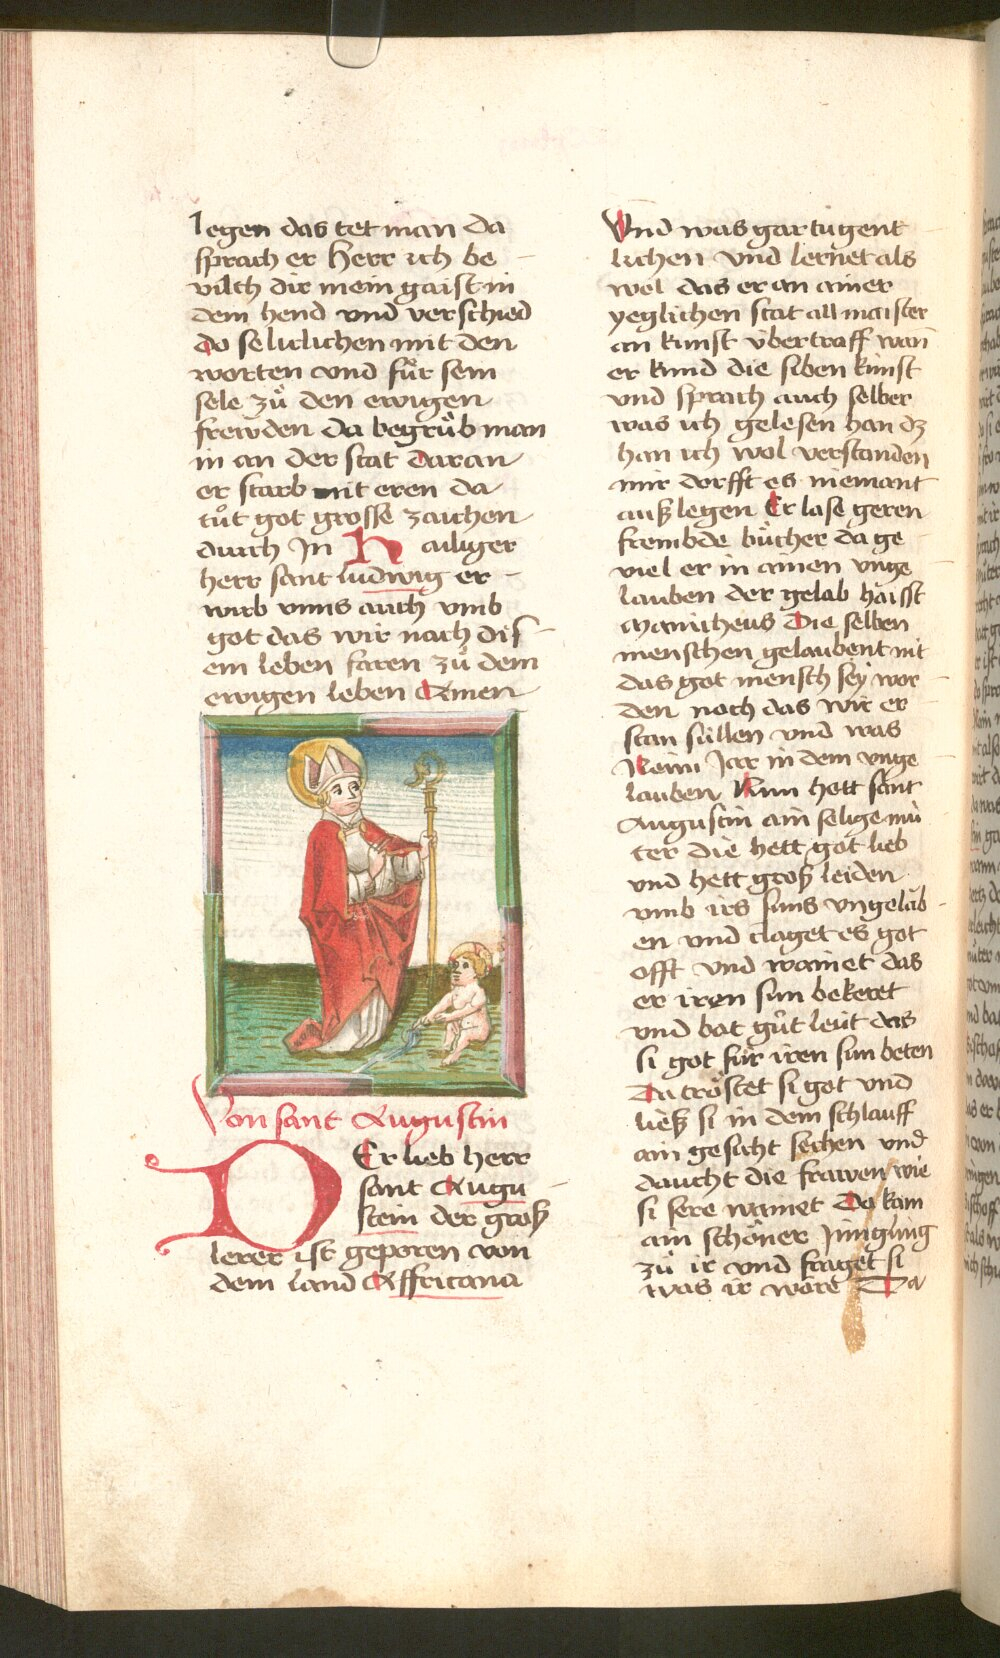 legen das tet man da
sprach er Herr ich be
vilch dir mein gaist in
dem hend vnd verschied
do seliclichen mit den
worten vnd fůr sein
sele zů den ewigen
frewden da begrůb man
in an der stat daran
er starb mit eren da
tůt got grosse zaichen
durch Jn Hailiger
herr sant ludwig er
wirb vnns auch vmb
got das wir nach dis
em leben faren zů dem
ewigen leben Amen
Von sant Augustin
DEr lieb herr
sant Augu
stein der groß
lerer ist geporen von
dem land Affricana
Vnd was gar tugent
lichen vnd lernet als
wol das er an ainer
yeglichen stat all maister
an kunst v̈bertraff wañ
er kund die siben kunst
vnd sprach auch selber
was ich gelesen han dz
han ich wol verstanden
mir dorfft es niemant
außlegen Er lase geren
frembde bůcher da ge
viel er in ainen vnge
lauben der gelab haisst
Manicheus Die selben
menschen gelaubent nit
das got mensch sey wor
den noch das wir er
stan süllen vnd was
Neun Jar in dem vnge
lauben Nun hett sant
Augustin ain selige mů
ter die hett got lieb
vnd hett groß leiden
vmb irs suns vngelāb
en vnd claget es got
offt vnd wainet das
er iren sun bekeret
vnd bat gůt leüt das
si got für iren sun beten
Da tröstet si got vnd
ließ si in dem schlauff
ain gesicht sechen vnd
daucht die frawen wie
si sere wainet Do kam
ain schöner Jüngling
zů ir vnd fraget si
was ir wäre Da